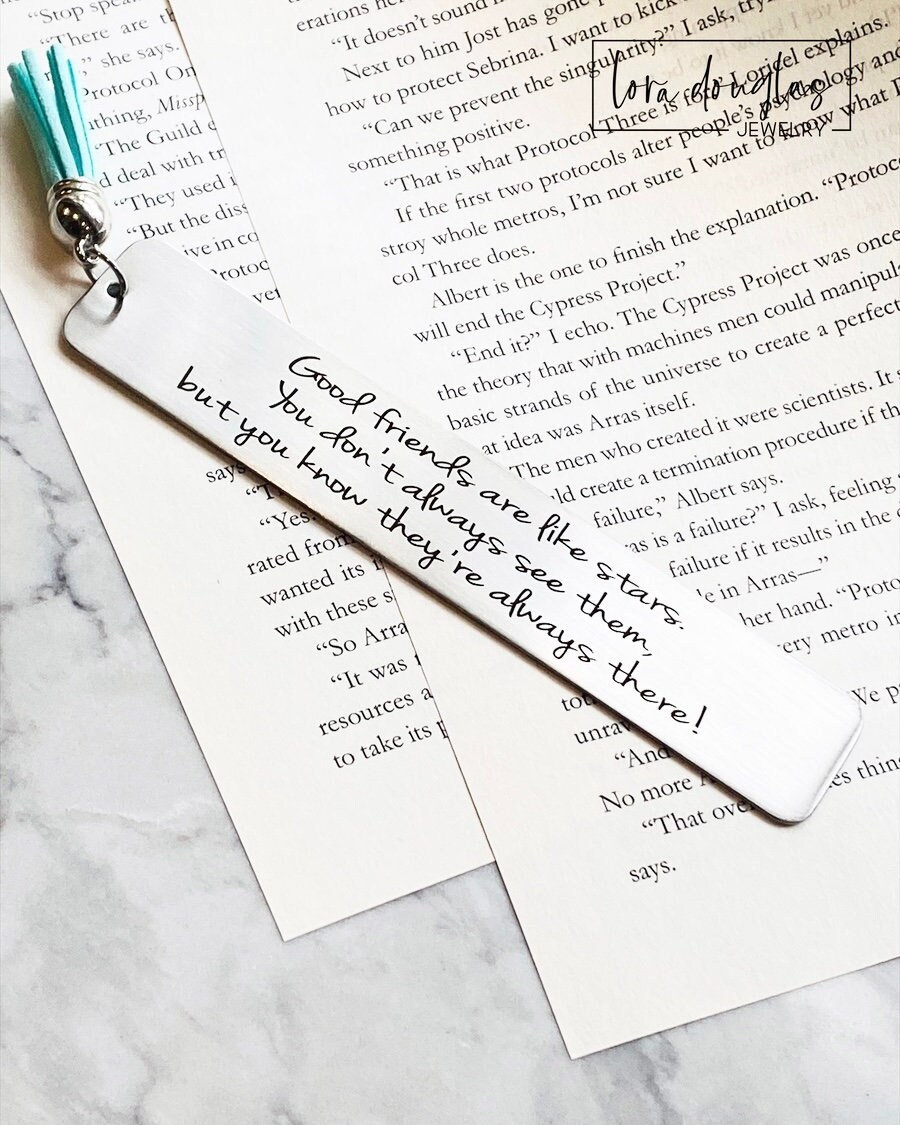 "Stop speak
"There are th
" she says.
Protocol On
thing, Missp
"The Guild c
d deal with tr
"They used i
"But the diss
ive in co
Protoc
ver
says
"T
"Yes.
rated from
wanted its i
with these s
"So Arra
"It was t
resources a
to take its p
erations her
"It doesn't sound
Next to him Jost has gone
how to protect Sebrina. I want to kick
"Can we prevent the singularity?" I ask, tryi
something positive.
"That is what Protocol Three is for," Loricel explains.
If the first two protocols alter people's psychology and
stroy whole metros, I'm not sure I want to know what P
col Three does.
Albert is the one to finish the explanation. "Protoco
will end the Cypress Project."
"End it?" I echo. The Cypress Project was once
the theory that with machines men could manipula
basic strands of the universe to create a perfect
at idea was Arras itself.
The men who created it were scientists. It s
ld create a termination procedure if th
failure," Albert says.
as is a failure?" I ask, feeling
failure if it results in the
le in Arras—"
her hand. "Proto
ery metro in
We p
tou
unrav
"And
No more A
es thing
"That ove
says.
lora douglas
JEWELRY
Good friends are like stars.
You don't always see them,
but you know they're always there!